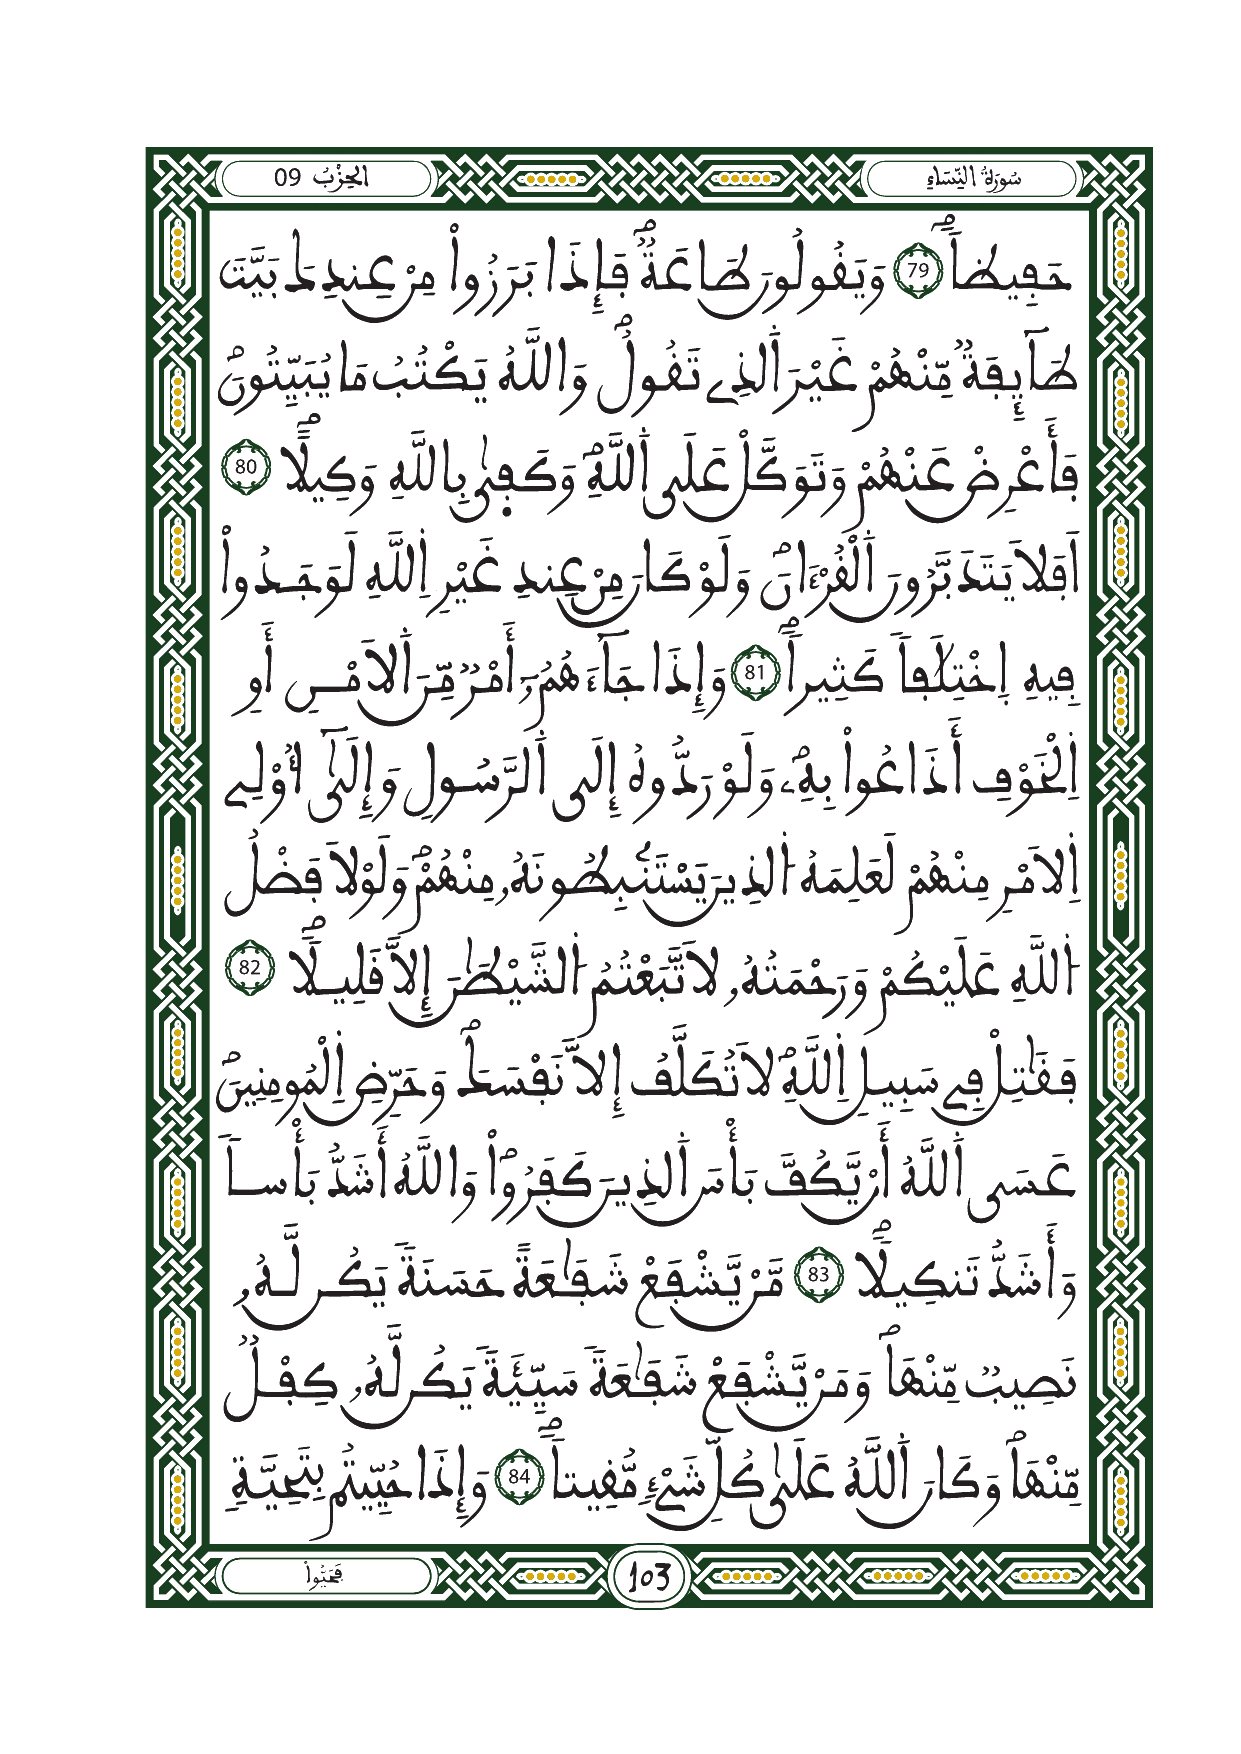 سُورَةُ النِّسَاءِ
الحِزْبُ 09
حَفِيظاًۖ 79 وَيَقُولُونَ طَاعَةٞۖ فَإِذَا بَرَزُواْ مِنْ عِندِكَ بَيَّتَ
طَآئِفَةٞ مِّنْهُمْ غَيْرَ اَ۬لذِے تَقُولُۖ وَاللَّهُ يَكْتُبُ مَا يُبَيِّتُونَۖ
فَأَعْرِضْ عَنْهُمْ وَتَوَكَّلْ عَلَى اَ۬للَّهِۖ وَكَف۪ىٰ بِاللَّهِ وَكِيلًاۖ 80
اَفَلَا يَتَدَبَّرُونَ اَ۬لْقُرْءَانَۖ وَلَوْ كَانَ مِنْ عِندِ غَيْرِ اِ۬للَّهِ لَوَجَدُواْ
فِيهِ اِ۪خْتِلَٰفاٗ كَثِيراٗۖ 81 وَإِذَا جَآءَهُمُۥٓ أَمْرٞ مِّنَ اَ۬لَامْنِ أَوِ
اِ۬لْخَوْفِ أَذَاعُواْ بِهِۦۖ وَلَوْ رَدُّوهُ إِلَى اَ۬لرَّسُولِ وَإِلَىٰٓ أُوْلِے
اِ۬لَامْرِ مِنْهُمْ لَعَلِمَهُ اُ۬لذِينَ يَسْتَنۢبِطُونَهُۥ مِنْهُمْۖ وَلَوْلَا فَضْلُ
اُ۬للَّهِ عَلَيْكُمْ وَرَحْمَتُهُۥ لَاتَّبَعْتُمُ اُ۬لشَّيْطَٰنَ إِلَّا قَلِيلاٗۖ 82
فَقَٰتِلْ فِے سَبِيلِ اِ۬للَّهِۖ لَا تُكَلَّفُ إِلَّا نَفْسَكَۖ وَحَرِّضِ اِ۬لْمُومِنِينَۖ
عَسَى اَ۬للَّهُ أَنْ يَّكُفَّ بَأْسَ اَ۬لذِينَ كَفَرُواْۖ وَاللَّهُ أَشَدُّ بَأْساٗ
وَأَشَدُّ تَنكِيلاٗۖ 83 مَّنْ يَّشْفَعْ شَفَٰعَةً حَسَنَةٗ يَكُن لَّهُۥ
نَصِيبٞ مِّنْهَاۖ وَمَنْ يَّشْفَعْ شَفَٰعَةٗ سَيِّئَةٗ يَكُن لَّهُۥ كِفْلٞ
مِّنْهَاۖ وَكَانَ اَ۬للَّهُ عَلَىٰ كُلِّ شَےْءٖ مُّقِيتاٗۖ 84 وَإِذَا حُيِّيتُم بِتَحِيَّةٖ
103
فَحَيُّواْ